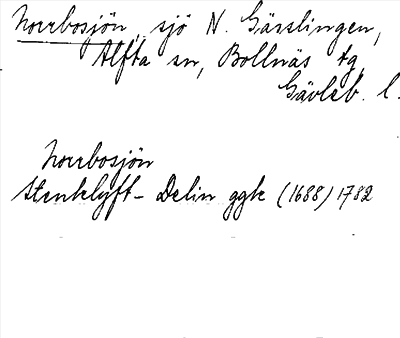 Norrbosjön, sjö N. Gässlingen,
Alfta sn, Bollnäs tg
Gävleb. l.
Norrbosjön
Stenklyft- Delin ggk (1688) 1782